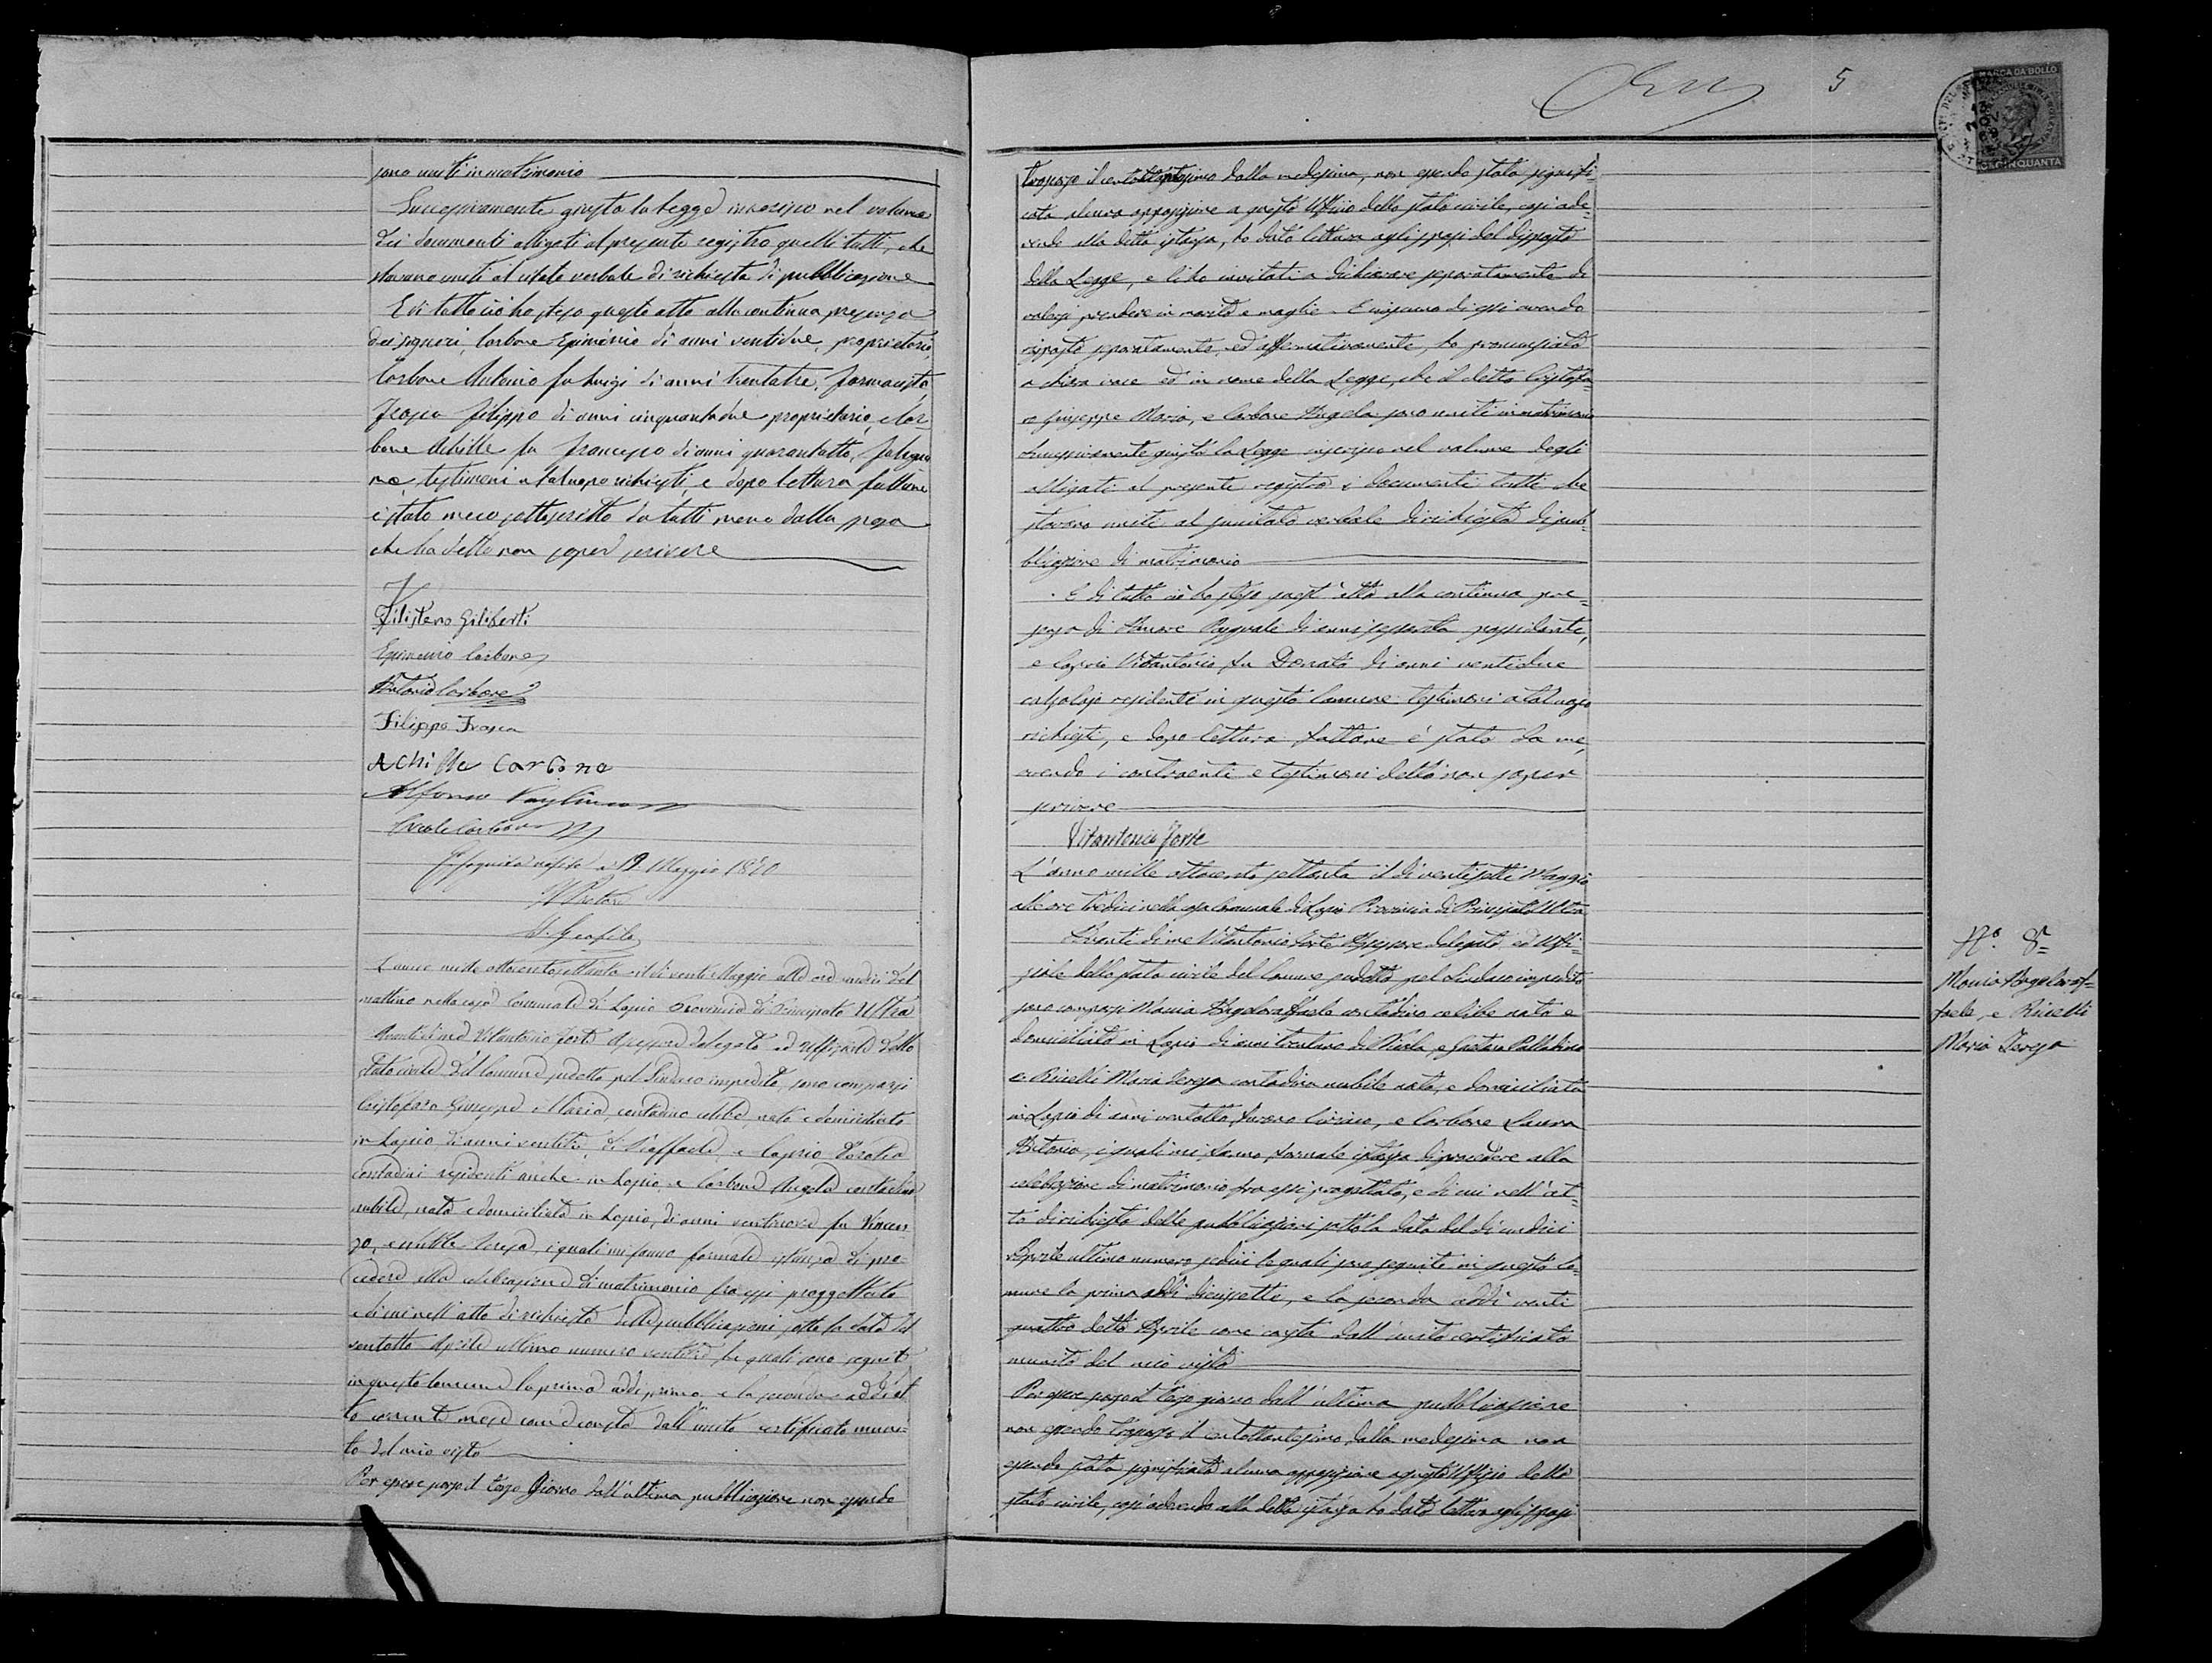 sono uniti in matrimonio
Successivamente giusta la Legge inserisco nel volume
dei documenti alligati al presente registro quelli tutti, che
stavano uniti al citato verbale di richiesta di pubblicazione
E di tutto ciò ho steso questo atto alla continua presenza
dei signori, Carbone Epimenio di anni ventidue, proprietario,
Carbone Antonio fu Luigi di anni trentatre, farmacista,
Frasca Filippo di anni cinquantadue proprietario, e Car-
bone Achille fu Francesco di anni quarantotto, falegna
me, testimoni a tal uopo richiesti, e dopo lettura fattane
è stato meco sottoscritto da tutti meno dalla sposa
che ha detto non saper scrivere
Filisteno Giliberti
Epimenio Carbone
Antonio Carbone
Filippo Frasca
Achille Carbone
Alfonso
Ercole Carbone
19 Maggio 1870
Il Pretore
L'anno mille ottocento settanta il dì venti Maggio alle ore undici del
mattino nella casa Comunale di Lapio Provincia di Principato Ultra
Avanti di me Vitantonio Forte Assessore delegato ed uffiziale dello
stato civile del Comune suddetto pel Sindaco impedito, sono comparsi
Cristofaro Giuseppe Maria, contadino celibe, nato e domiciliato
in Lapio, di anni ventitre, di Raffaele, e Caprio Donata
contadini residenti anche in Lapio, e Carbone Angela contadina
nubile, nata e domiciliata in Lapio, di anni ventinove fu Vincen
zo, e Teresa, i quali mi fanno formale istanza di pro-
cedere alla celebrazione di matrimonio fra essi proggettato
e di cui nell'atto di richiesta delle pubblicazioni sotto la data del
ventotto Aprile ultimo numero le quali sono seguite
in questo Comune la prima addì primo e la seconda addì ot
to corrente mese come consta dall'unito certificato muni-
to del mio visto
Per essere scorso il terzo Giorno dall'ultima pubblicazione non essendo
5
MARCA DA BOLLO
CINQUANTA
trascorso il centottantesimo dalla medesima, non essendo stata signifi-
cata alcuna opposizione a questo Uffizio dello stato civile, così ade-
rendo alla detta istanza, ho dato lettura agli sposi del disposto
della Legge, e li ho invitati a dichiarare separatamente di
volersi prendere in marito e moglie. E ciascuno di essi avendo
risposto separatamente, ed affermativamente, ho pronunziato
a chiara voce ed in nome della Legge, che il detto Cristofa-
ro Giuseppe Maria, e Carbone Angela sono uniti in matrimonio
Successivamente giusta la Legge inserisco nel volume degli
alligati al presente registro i documenti tutti che
stavano uniti al succitato verbale di richiesta di pub-
blicazione di matrimonio
E di tutto ciò ho steso quest'atto alla continua pre-
senza di Pasquale di anni sessanta possidente,
e Caprio Vitantonio fu Donato di anni ventidue
calzolajo residenti in questo Comune testimoni a tal uopo
richiesti, e dopo lettura fattane è stato da me,
avendo i contraenti e testimoni detto non saper
scrivere
Vitantonio Forte
L'anno mille ottocento settanta il dì ventisette Maggio
alle ore tredici nella casa Comunale di Lapio Provincia di Principato Ultra
Avanti di me Vitantonio Forte Assessore delegato ed Uffi-
ziale dello stato civile del Comune suddetto pel Sindaco impedito
sono comparsi Angeloraffaele contadino celibe nato e
domiciliato in Lapio di anni trentuno di Nicola, e Gaetana Palladino
e Ricelli Maria Teresa contadina nubile nata, e domiciliata
in Lapio di anni ventotto, furono Ciriaco, e Carbone Laura
Antonia, i quali mi fanno formale istanza di procedere alla
celebrazione di matrimonio fra essi progettato, e di cui nell'at-
to di richiesta delle pubblicazioni sotto la data del dì undici
Aprile ultimo numero sedici le quali sono seguite in questo Co-
mune la prima addì diciassette, e la seconda addì venti
quattro detto Aprile come consta dall'unito certificato
munito del mio visto
Per essere scorso il terzo giorno dall'ultima pubblicazione
non essendo trascorso il centottantesimo dalla medesima non
essendo stata significata alcuna opposizione a questo Uffizio dello
stato civile, così aderendo alla detta istanza ho dato lettura agli sposi
N.° 8
Angeloraf-
faele, e Ricelli
Maria Teresa